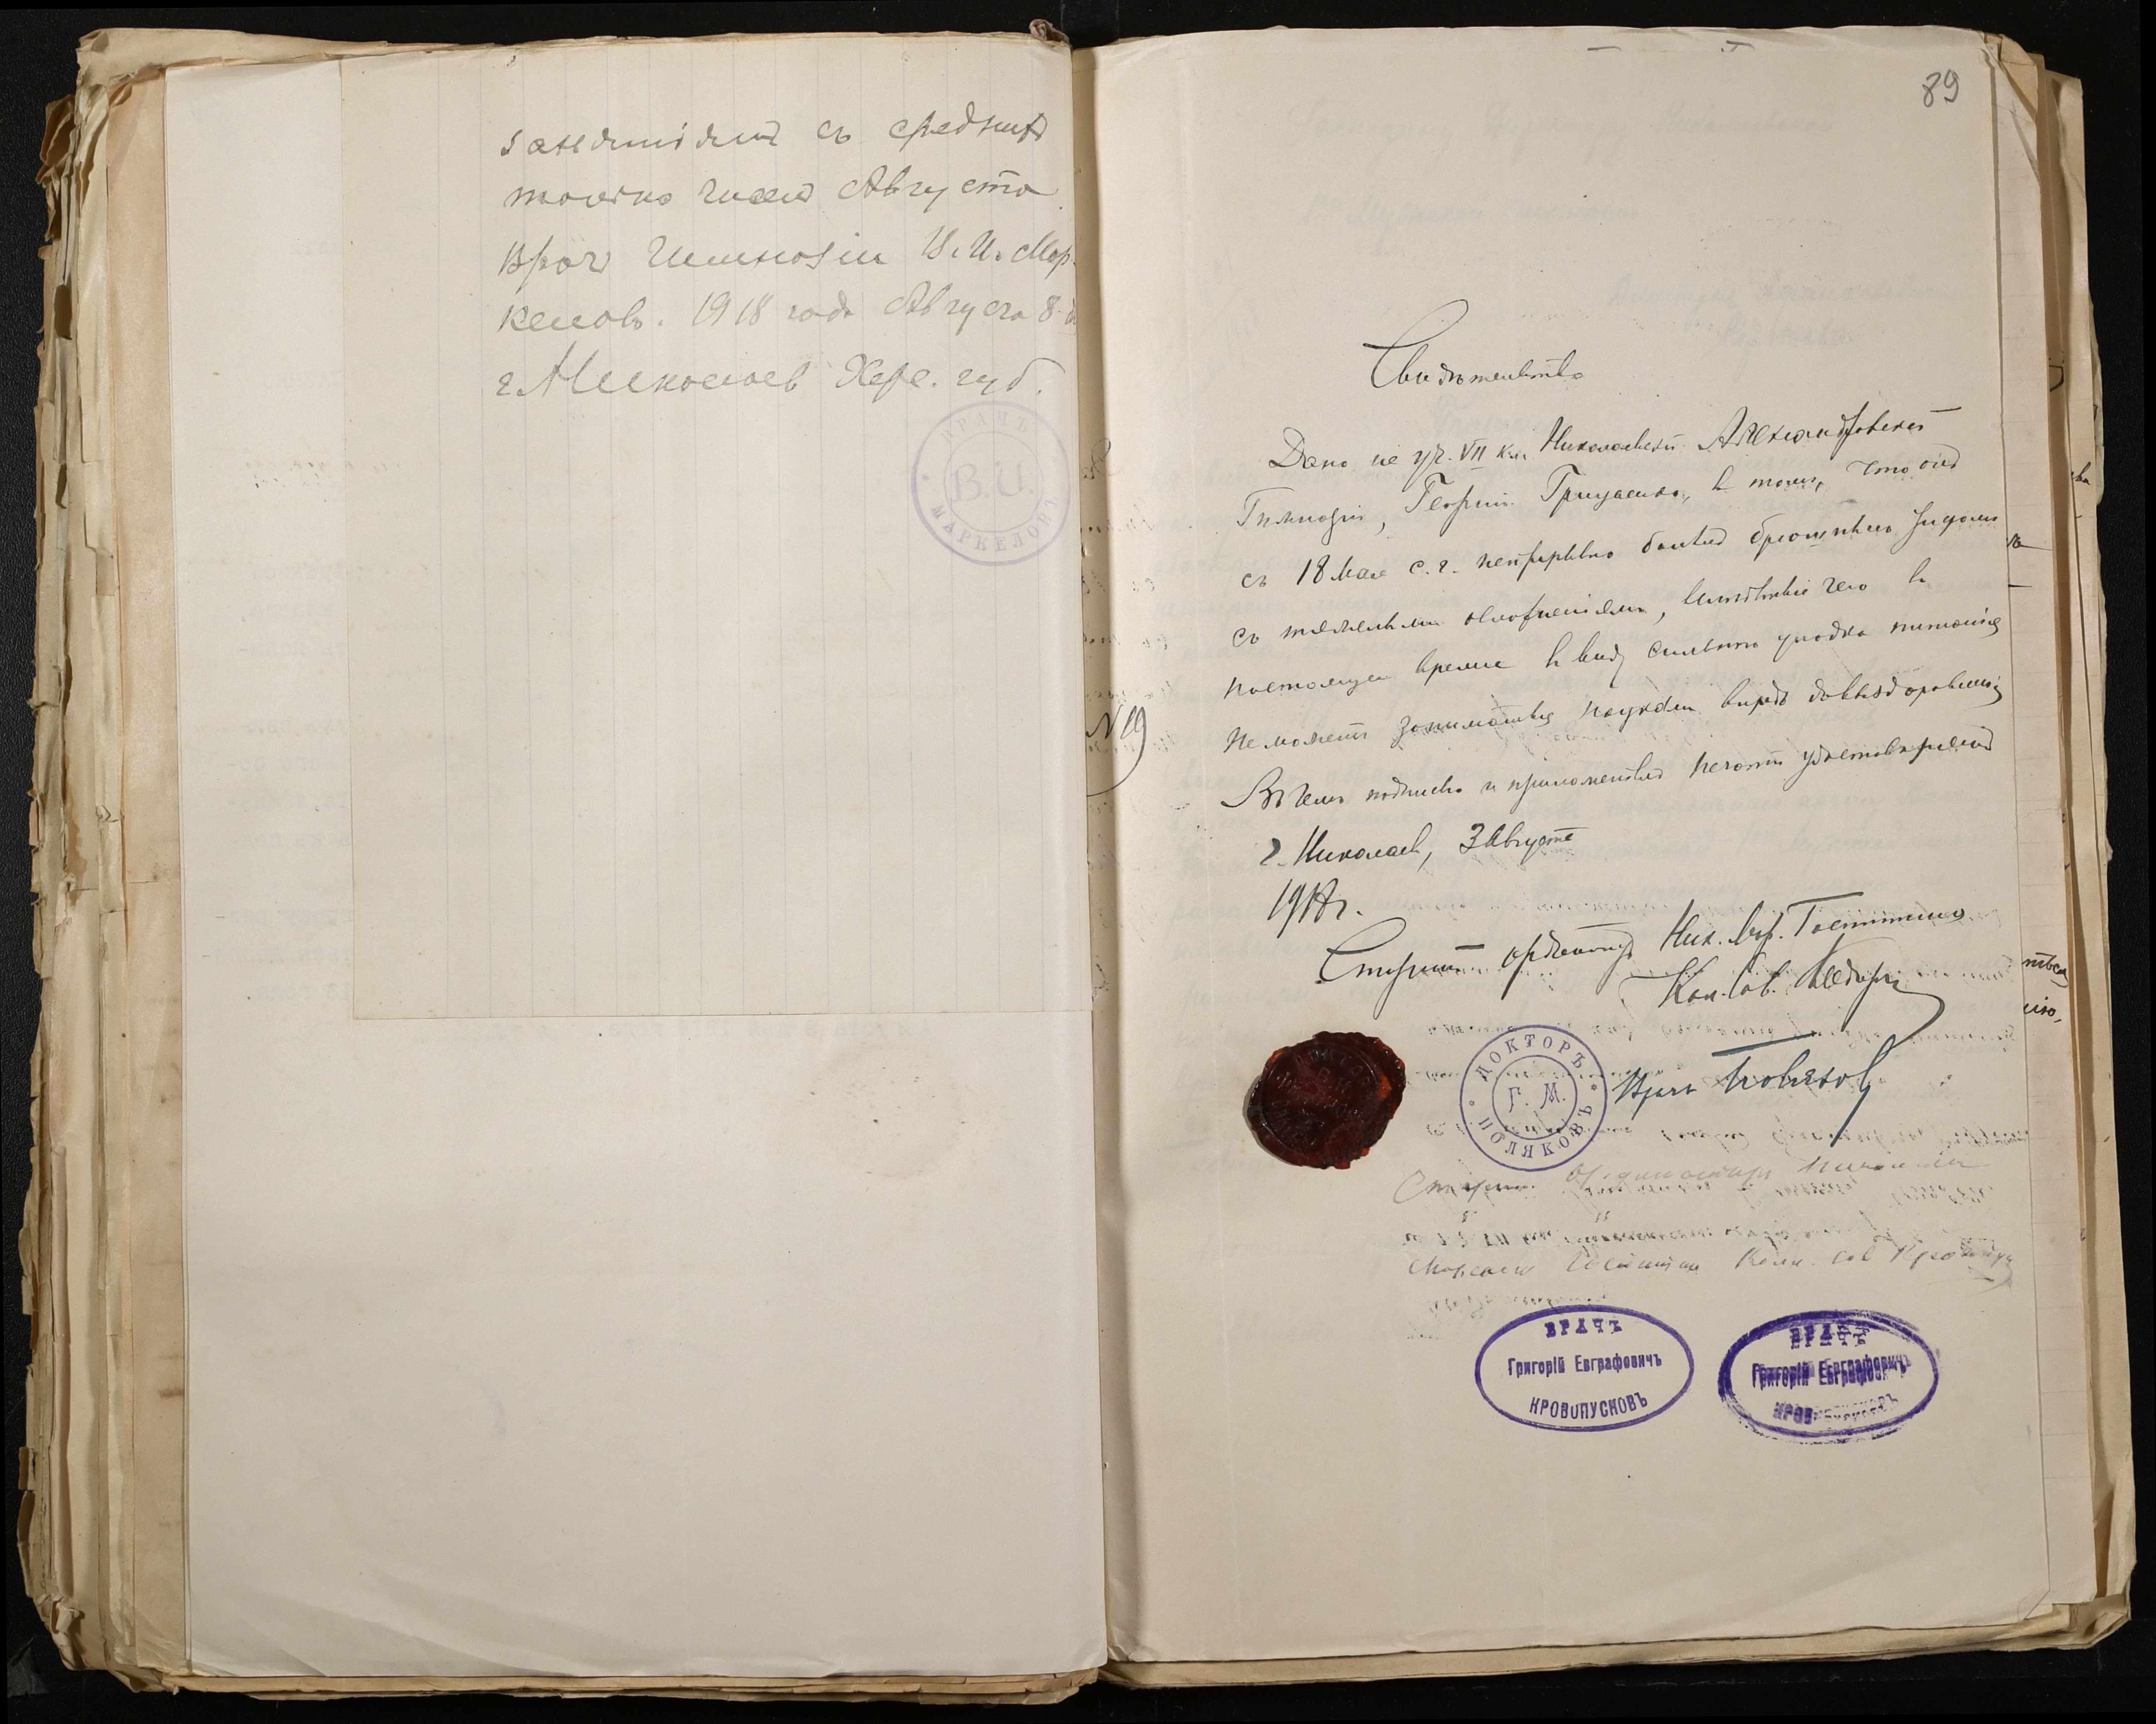 занятіямъ съ среднихъ
только чиселъ Августа.
Врачъ Гимназіи В. И. Мар-
келовъ. 1918 года Августа 8 д
г. Николаев Херс. губ.
ВРАЧЪ
В. И.
МАРКЕЛОВЪ
89
Свидѣтельство
Дано уч. VII кл. Николаевской Александровской
Гимназіи, Георгию Грицаенко, в томъ, что онъ
съ 18 Мая с. г. непрерывно болѣлъ брюшнымъ тифомъ
съ тяжелыми осложненіями, вслѣдствіе чего в
настоящее время в виду сильнаго упадка питанія
не можетъ заниматься науками впредь до выздоровленія
Въ чемъ подписью и приложеніемъ печати удостовѣряемъ
г. Николаев, 3 Августа
1918 г.
Старшій ординаторъ Ник. Мор. Госпиталя
Кол. Сов.
№ 19
ДОКТОРЪ
Г. М.
ПОЛЯКОВЪ
Врачъ Поляков
Старший Ординаторъ Николаев
Морского Госпиталя Колл. сов
ВРАЧЪ
Григорій Евграфовичъ
КРОВОПУСКОВЪ
ВРАЧЪ
Григорій Евграфович
КРОВОПУСКОВЪ